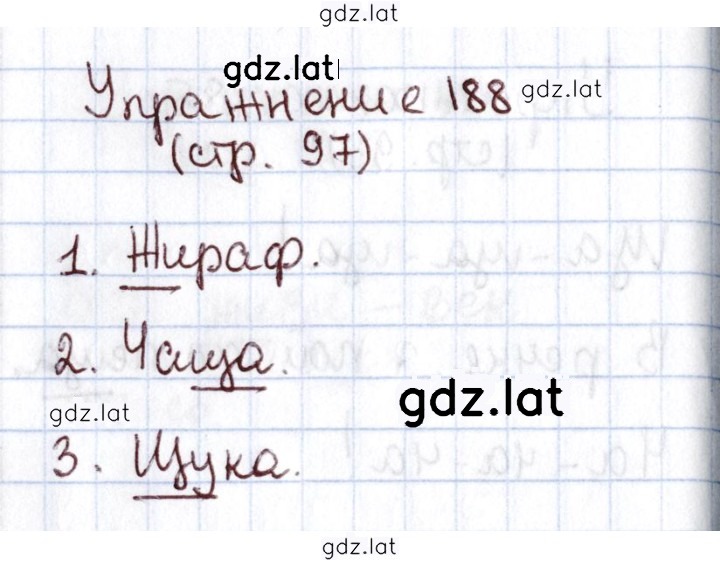 gdz.lat
gdz.lat
Упражнение 188 gdz.lat
(стр. 97)
1. Жираф.
2. Чаща.
gdz.lat
gdz.lat
3. Щука.
gdz.lat